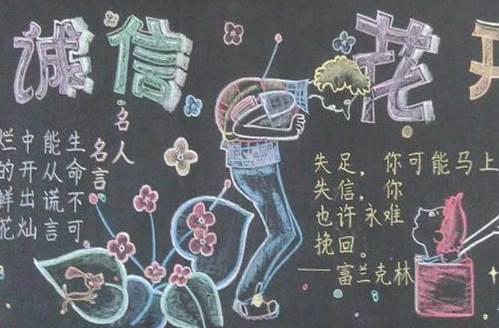 诚信花开
名人
名言
生命不可
能从谎言
中开出灿
烂的鲜花
失足，你可能马上
失信，你
也许永难
挽回。
——富兰克林